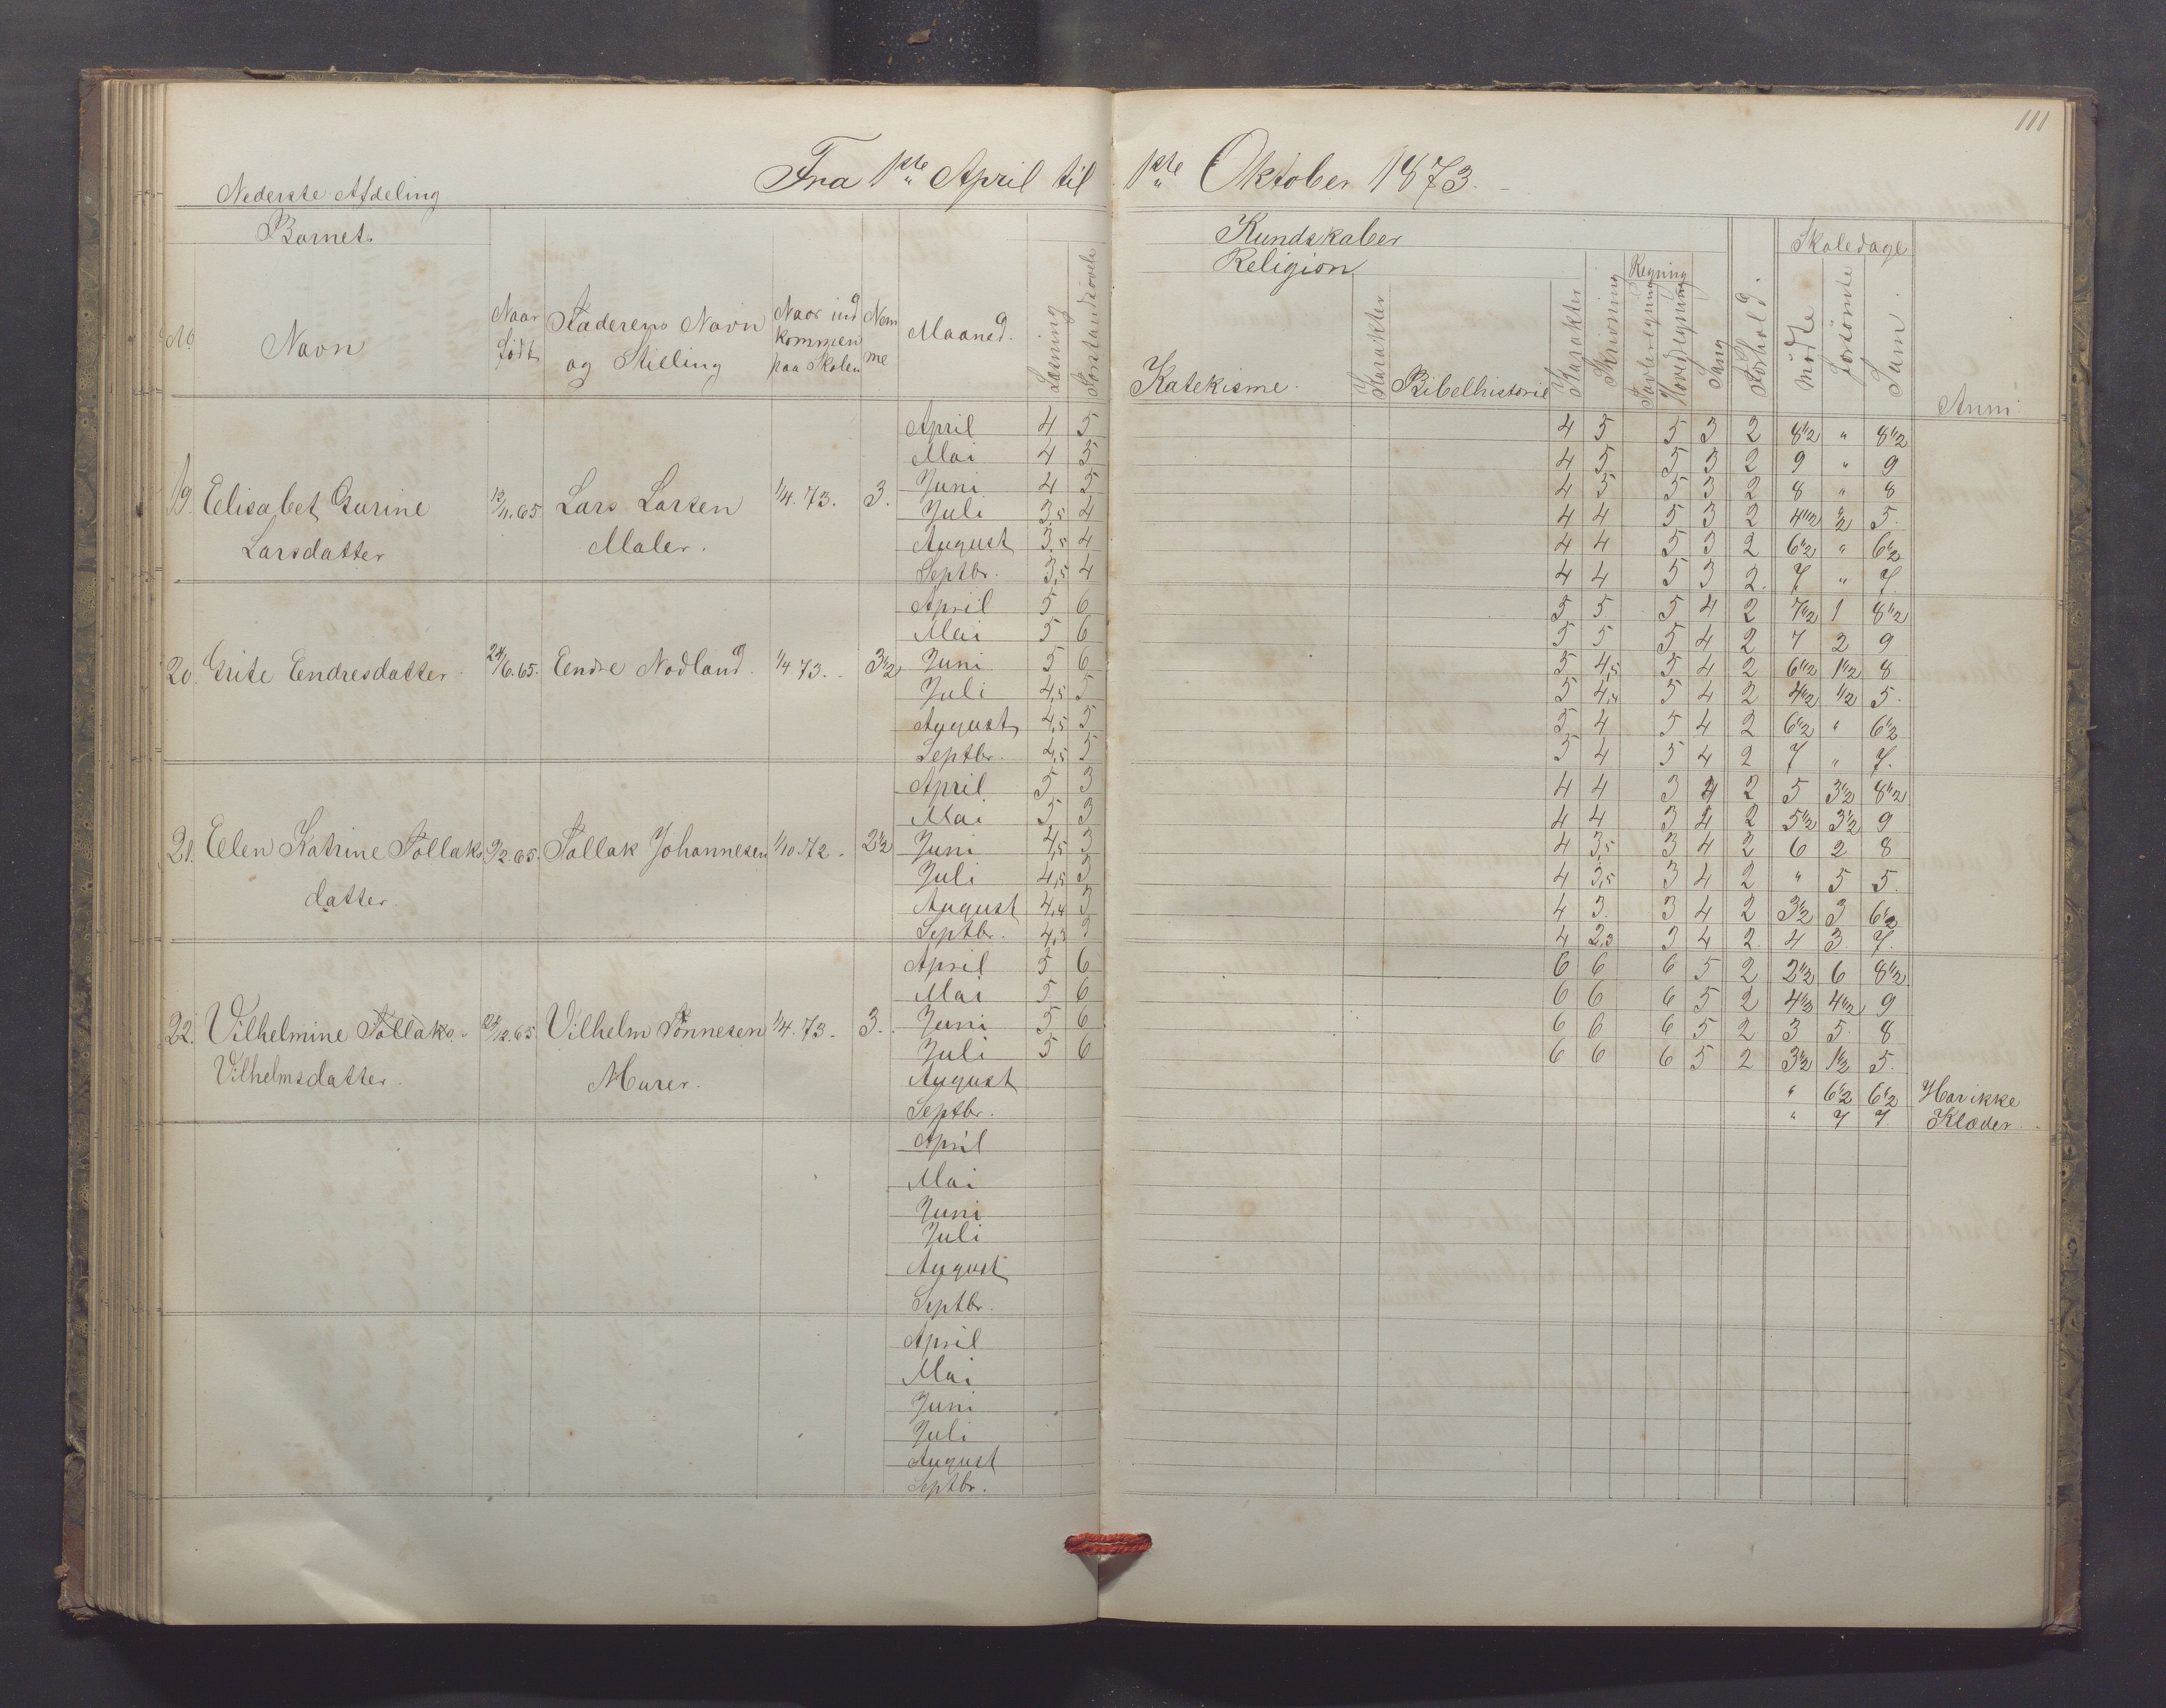 111
Fra 1ste April til 1ste Oktober 1873.
Nederste Afdeling
Barnets
Kundskaber
Skoledage
Religion
Regning
No
Navn
Naar født
Faderens Navn og Stilling
Naar ind kommen paa Skolen
Nem me
Maaned.
Læsning
Forstandsøvelse
Katekisme.
Karakter
Bibelhistorie
Karakter
Skrivning
Tavleregning
Hovedregning
Sang
Forhold.
mødte
forsömte
Sum.
Anm:
April 4 5 4 5 5 3 2 8 1/2 " 8 1/2
Mai 4 5 4 5 5 3 2 9 " 9
Juni 4 5 4 5 5 3 2 8 " 8
19. Elisabet Gurine 13/11.65 Lars Larsen 1/4.73. 3. Juli 3,5 4 4 4 5 3 2 4 1/2 1/2 5.
Larsdatter Maler. August 3,5 4 4 4 5 3 2 6 1/2 " 6 1/2
Septbr. 3,5 4 4 4 5 3 2. 7 " 7.
April 5 6 5 5 5 4 2 7 1/2 1 8 1/2
Mai 5 6 5 5 5 4 2 7 2 9
20. Grite Endresdatter. 24/6.65. Endre Nodland. 1/4 73. 3 1/2 Juni 5 6 5 4,5 5 4 2 6 1/2 1 1/2 8
Juli 4,5 5 5 4,4 5 4 2 4 1/2 1/2 5.
August 4,5 5 5 4 5 4 2 6 1/2 " 6 1/2
Septbr. 4,5 5 5 4 5 4 2 7 " 7.
April 5 3 4 4 3 4 2 5 3 1/2 8 1/2
Mai 5 3 4 4 3 4 2 5 1/2 3 1/2 9
21. Elen Katrine Tollaks 9/2.65. Tollak Johannesen 1/10.72. 2 1/2 Juni 4,5 3 4 3,5 3 4 2 6 2 8
Juli 4,5 3 4 3,5 3 4 2 " 5 5.
datter. August 4,4 3 4 3. 3 4 2 3 1/2 3 6 1/2
Septbr. 4,3 3 4 2,3 3 4 2. 4 3. 7.
April 5 6 6 6 6 5 2 2 1/2 6 8 1/2
Mai 5 6 6 6 6 5 2 4 1/2 4 1/2 9
22. Vilhelmine Tollaks 12.65 Vilhelm Tönnesen 1/4.73. 3. Juni 5 6 6 6 6 5 2 3 5. 8
Juli 5 6 6 6 6 5 2 3 1/2 1 1/2 5.
Vilhelmsdatter. Murer. August " 6 1/2 6 1/2 Har ikke
Septbr. " 7 7. Klæder.
April
Mai
Juni
Juli
August
Septbr.
April
Mai
Juni
Juli
August
Septbr.